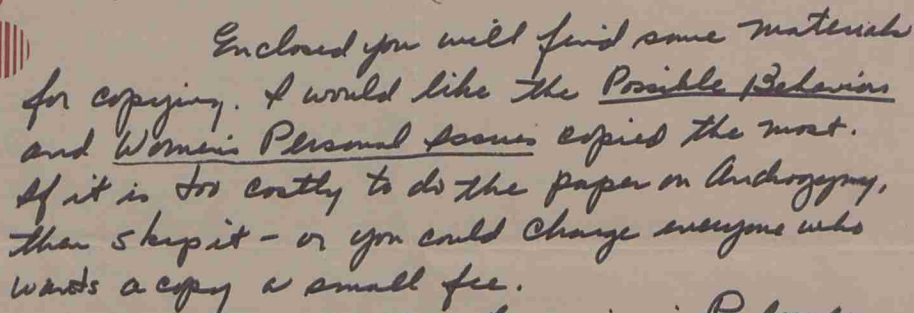 Enclosed you will find some materials
for copying. I would like the Possible Behaviors
and Women's Personal Issues copied the most.
If it is too costly to do the paper on Androgyny,
then skip it - or you could charge everyone who
wants a copy a small fee.